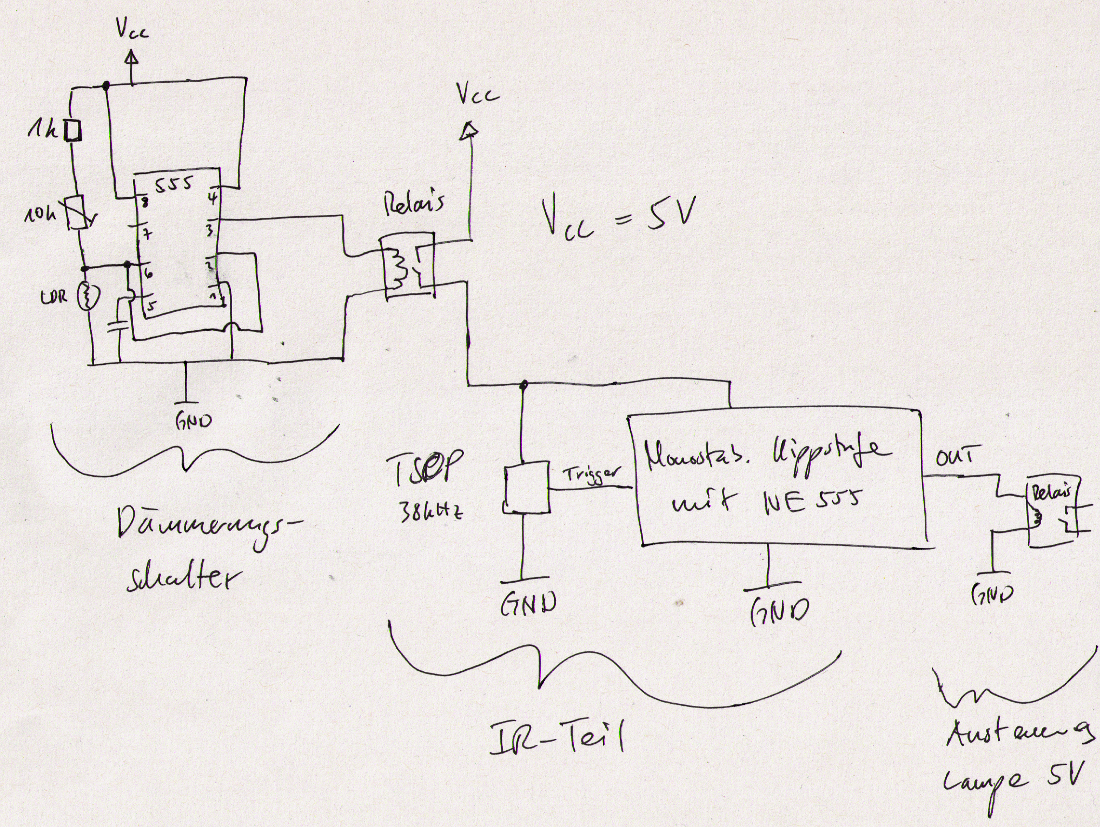 Vcc
1k
10k
LDR
555
8
4
7
3
6
2
5
1
GND
Dämmerungs-
schalter
Relais
Vcc
Vcc = 5V
TSOP
38kHz
Trigger
GND
Monostab. Kippstufe
mit NE 555
GND
OUT
Relais
GND
IR-Teil
Ansteuerung
Lampe 5V